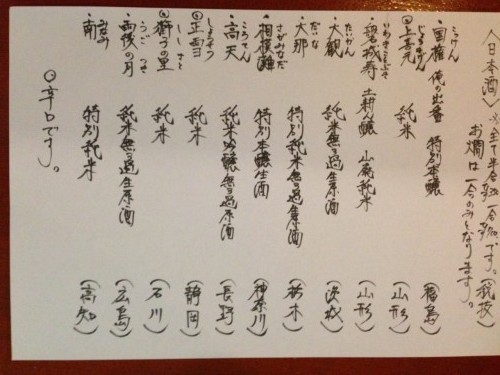 〈日本酒〉 ※全て半合 一合です。(税抜)
お燗は一合のみとなります。
こっけん
・国権 俺の出番 特別本醸 (福島)
じょうきげん
◎上喜元 純米 (山形)
いわきことぶき
・磐城寿 土耕ん醸 山廃純米 (山形)
たいかん
・大観 純米無ろ過生原酒 (茨城)
だいな
・大那 特別純米無ろ過生原酒 (栃木)
さがみなだ
・相模灘 特別本醸生酒 (神奈川)
・高天 純米吟醸無ろ過原酒 (長野)
しょうせつ
◎正雪 純米 (静岡)
しし さと
◎獅子の里 純米 (石川)
うご つき
・雨後の月 純米無ろ過生原酒 (広島)
みなみ
・南 特別純米 (高知)
◎辛口です。